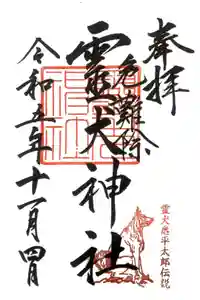 奉拝
危難除
霊犬神社
令和五年十一月四日
霊犬悉平太郎伝説